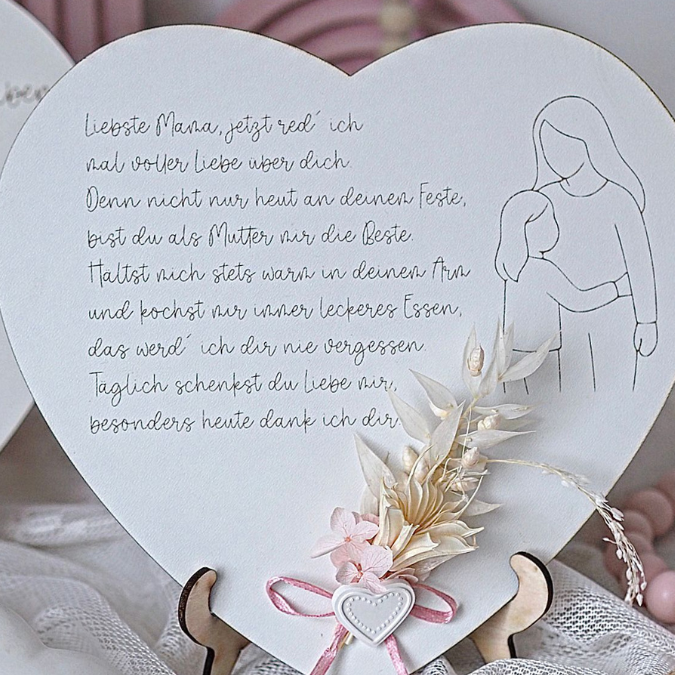 Liebste Mama, jetzt red´ ich
mal voller Liebe über dich.
Denn nicht nur heut an deinem Feste,
bist du als Mutter mir die Beste.
Hältst mich stets warm in deinem Arm
und kochst mir immer leckeres Essen,
das werd´ ich dir nie vergessen.
Täglich schenkst du Liebe mir,
besonders heute dank ich dir.